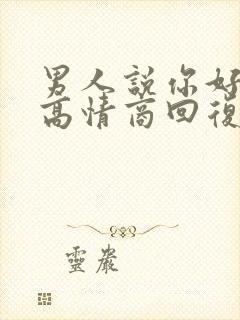 男人說你好
高情商回復
靈巖